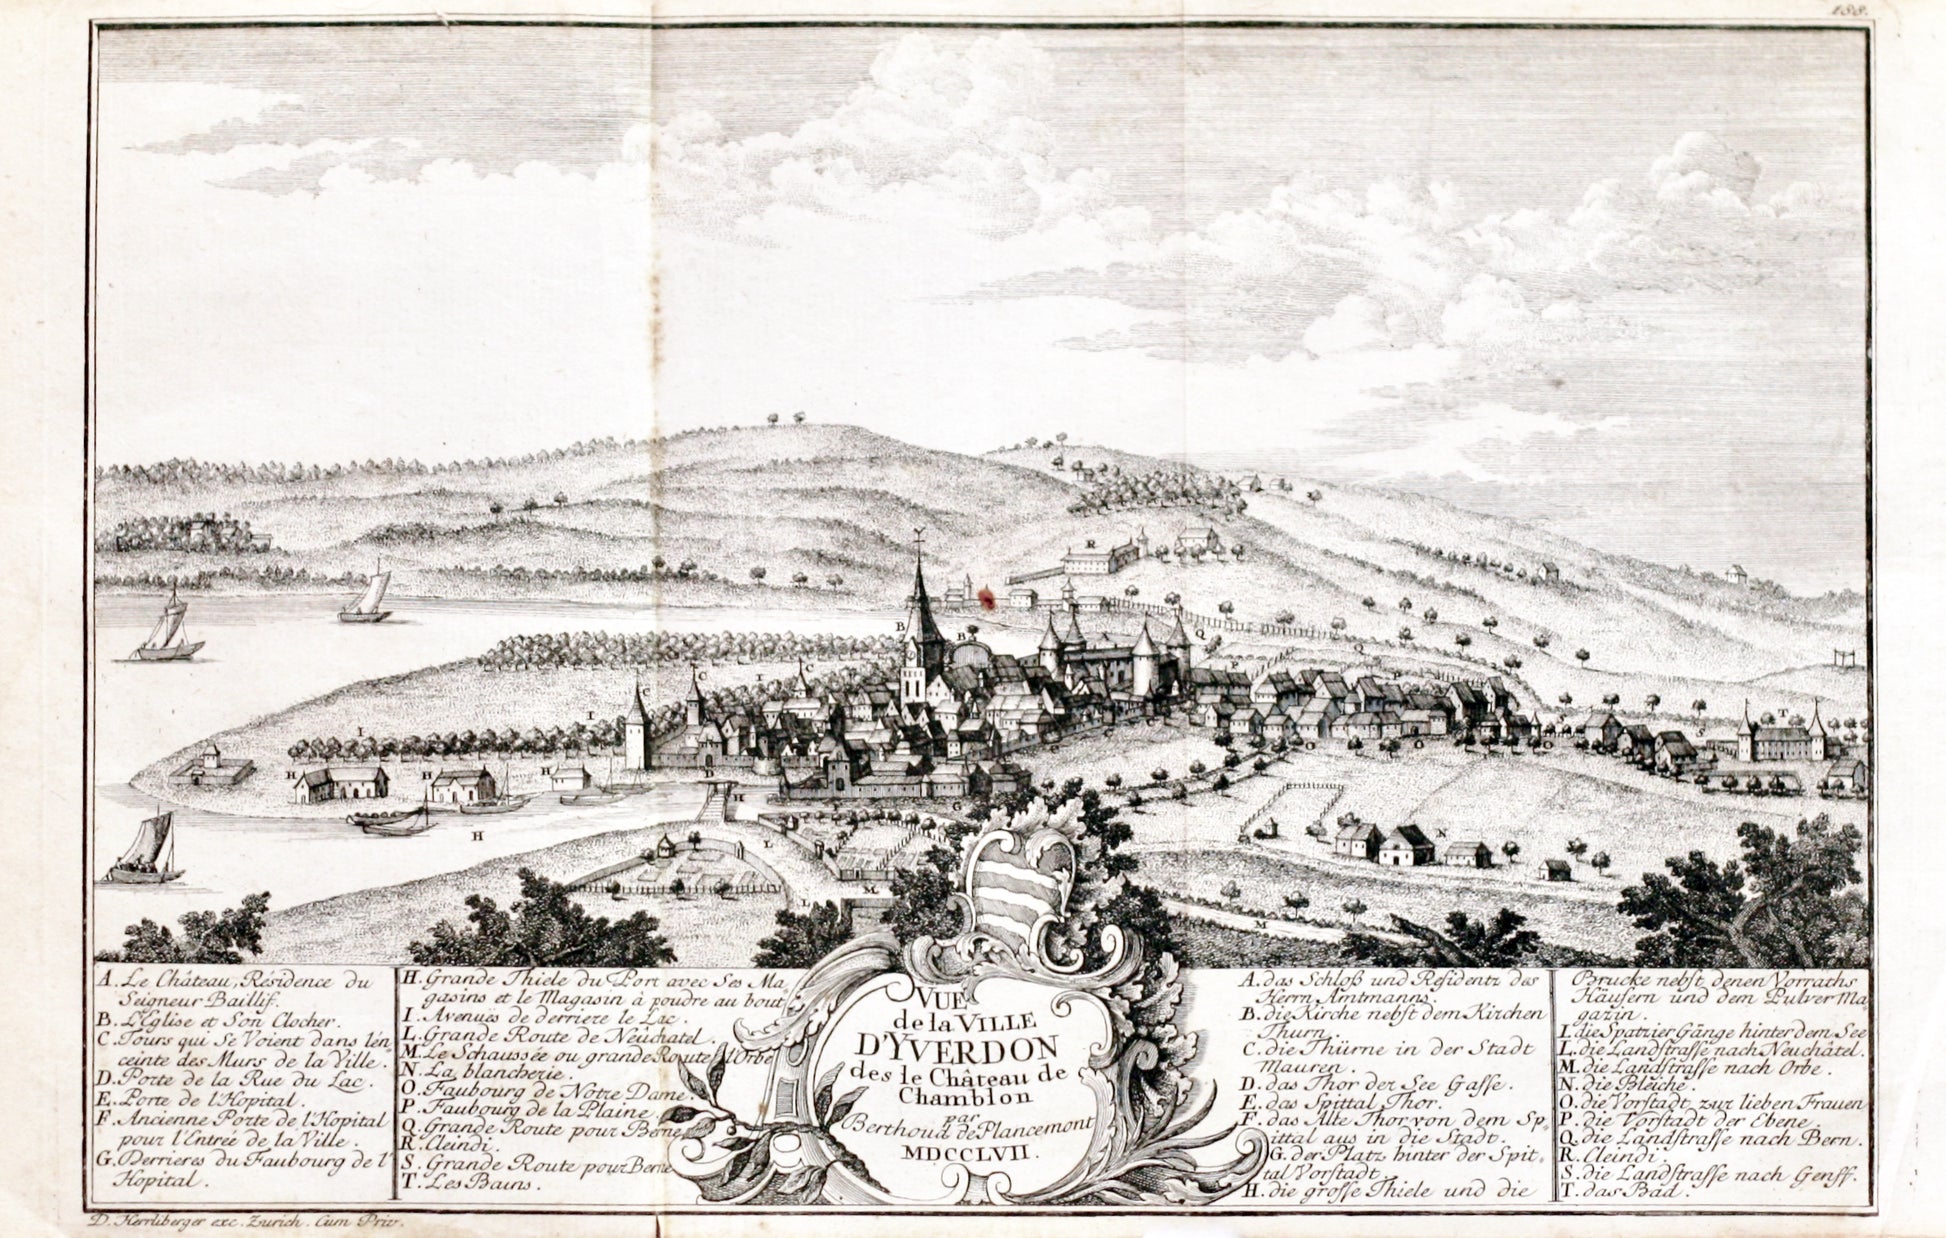 188.
A. Le Château, Résidence du
Seigneur Baillif.
B. L'Eglise et Son Clocher.
C. Tours qui Se Voient dans l'én-
ceinte des Murs de la Ville.
D. Porte de la Rue du Lac.
E. Porte de l'Hopital.
F. Ancienne Porte de l'Hopital
pour l'Entrée de la Ville.
G. Derrieres du Faubourg de l'
Hopital.
H. Grande Thiele du Port avec Ses Ma-
gasins et le Magasin à poudre au bout
I. Avenues de derriere le Lac.
L. Grande Route de Neuchatel.
M. Le Schaussée ou grande Route d'Orbe
N. La blancherie.
O. Faubourg de Notre Dame.
P. Faubourg de la Plaine.
Q. Grande Route pour Berne
R. Cleindi.
S. Grande Route pour Berne
T. Les Bains.
VUE
de la VILLE
D'YVERDON
des le Château de
Chamblon
par
Berthoud de Plancemont
MDCCLVII.
A. das Schloß und Residentz des
Herrn Amtmanns.
B. die Kirche nebst dem Kirchen
Thurn.
C. die Thürne in der Stadt
Mauren.
D. das Thor der See Gasse.
E. das Spittal Thor.
F. das Alte Thor von dem Sp-
ittal aus in die Stadt.
G. der Platz hinter der Spit-
tal Vorstadt.
H. die grosse Thiele und die
Brucke nebst denen Vorraths
Häusern und dem Pulver Ma
gazin.
I. die Spatzier Gänge hinter dem See
L. die Landstrasse nach Neuchâtel.
M. die Landstrasse nach Orbe.
N. die Bleiche.
O. die Vorstadt zur lieben Frauen
P. die Vorstadt der Ebene.
Q. die Landstrasse nach Bern.
R. Cleindi.
S. die Landstrasse nach Genff.
T. das Bad.
D. Herrliberger exc. Zurich. Cum Priv.